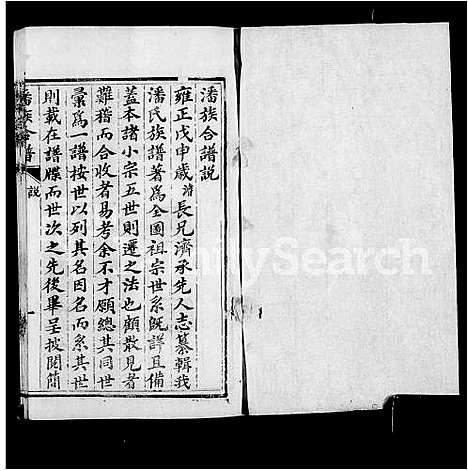 潘族合譜說
雍正戊申歲諱長兄濟承先人志纂輯我
潘氏族譜著爲全圖祖宗世系既詳且備
蓋本諸小宗五世則遷之法也顧散見者
難稽而合收者易考余不才願總其同世
彙爲一譜按世以列其名因名而系其世
則載在譜牒而世次之先後畢呈披閱簡
潘族合譜
說
一
FamilySearch